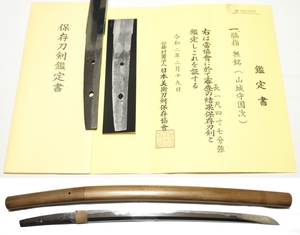 鑑定書
一、脇指 無銘(山城守国次)
長一尺四寸七分強
右は當協會に於て審査の結果保存刀剣と
鑑定しこれを証する
令和二年二月十九日
公益財団法人日本美術刀剣保存協會
保存刀剣鑑定書